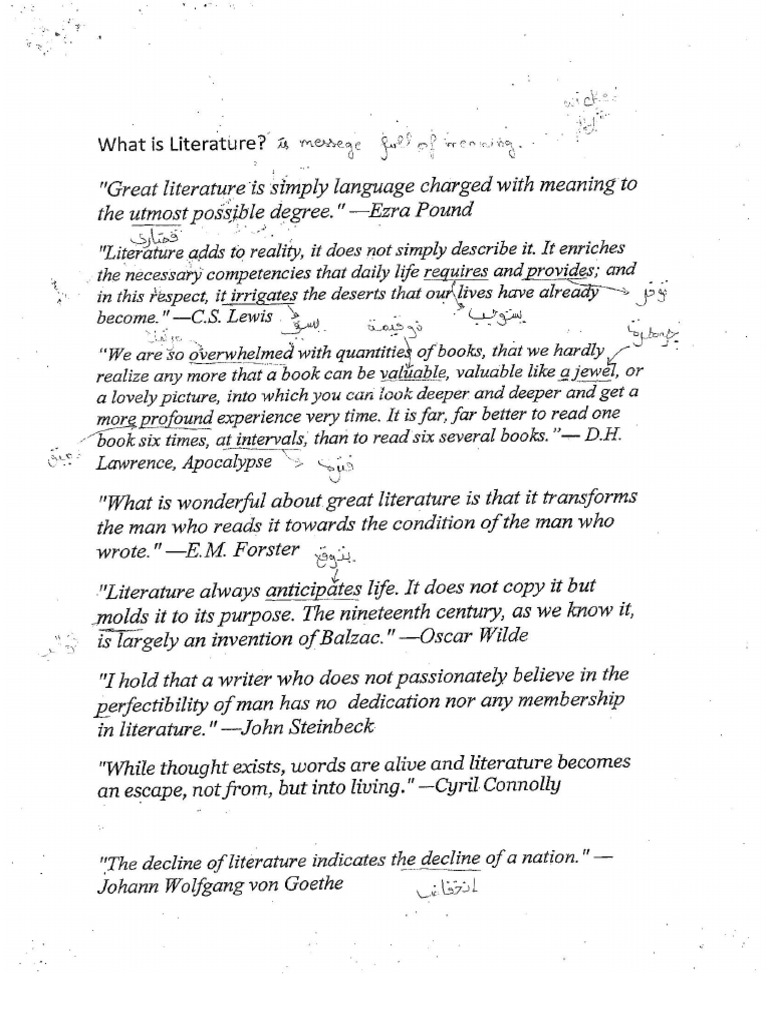 wicked
What is Literature? is messege full of meaning.
"Great literature is simply language charged with meaning to
the utmost possible degree." —Ezra Pound
قصارى
"Literature adds to reality, it does not simply describe it. It enriches
the necessary competencies that daily life requires and provides; and
in this respect, it irrigates the deserts that our lives have already
توفر
become." —C.S. Lewis
ذو قيمة
"We are so overwhelmed with quantities of books, that we hardly
realize any more that a book can be valuable, valuable like a jewel, or
a lovely picture, into which you can look deeper and deeper and get a
more profound experience very time. It is far, far better to read one
book six times, at intervals, than to read six several books."— D.H.
عميق
Lawrence, Apocalypse
"What is wonderful about great literature is that it transforms
the man who reads it towards the condition of the man who
wrote." —E.M. Forster
يتوقع
"Literature always anticipates life. It does not copy it but
molds it to its purpose. The nineteenth century, as we know it,
is largely an invention of Balzac." —Oscar Wilde
"I hold that a writer who does not passionately believe in the
perfectibility of man has no dedication nor any membership
in literature." —John Steinbeck
"While thought exists, words are alive and literature becomes
an escape, not from, but into living." —Cyril Connolly
"The decline of literature indicates the decline of a nation." —
Johann Wolfgang von Goethe